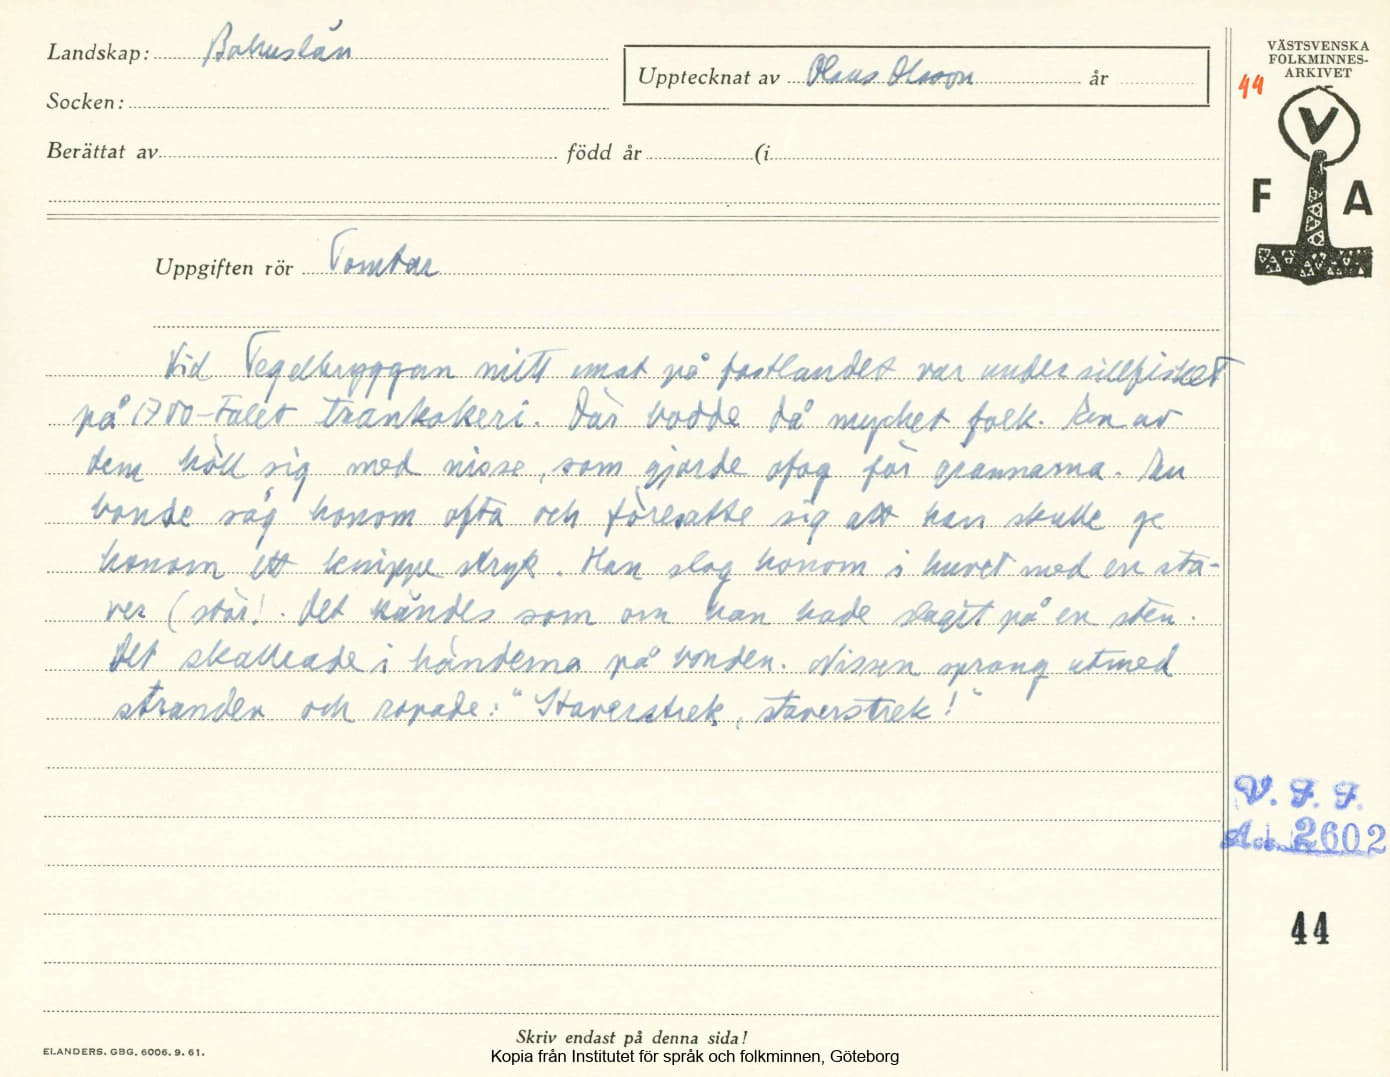 Landskap: Bohuslän
Upptecknat av Olaus Olsson år
Socken:
Berättat av född år (i
VÄSTSVENSKA
FOLKMINNES-
ARKIVET
44
V
F A
Uppgiften rör Tomtar
Vid Tegelbryggan mitt emot på fastlandet var under sillfisket
på 1700-talet trankokeri. Där bodde då mycket folk. En av
dem höll sig med nisse, som gjorde ofog för grannarna. En
bonde såg honom ofta och föresatte sig att han skulle ge
honom ett knippe stryk. Han slog honom i huvet med en sta-
ver (stör!. Det kändes som om han hade slagit på en sten.
Det skallrade i händerna på bonden. Nissen sprang utmed
stranden och ropade: "Staverstrek, staverstrek!"
V. F. F.
Acc. 2602
44
Skriv endast på denna sida!
ELANDERS. GBG. 6006. 9. 61.
Kopia från Institutet för språk och folkminnen, Göteborg